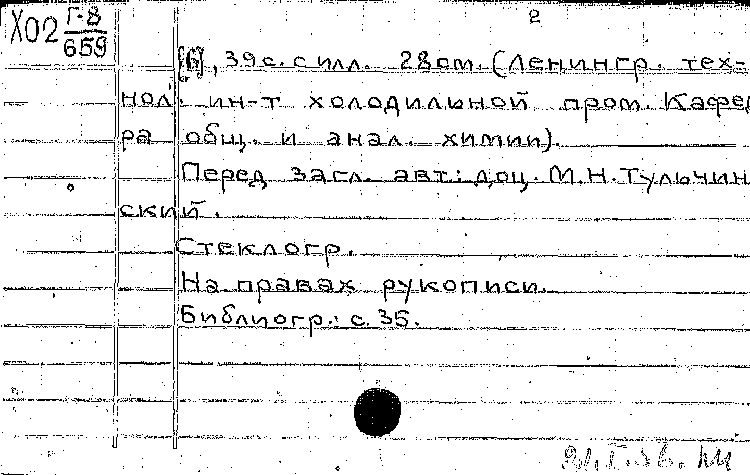 Х02 Г-8
659
2
[6], 39 с. с илл. 28 см. (Ленингр. тех-
нол. ин-т холодильной пром. Кафед
ра общ. и анал. химии).
Перед загл. авт: доц. М.Н.Тульчин
ский.
Стеклогр.
На правах рукописи.
Библиогр.: с. 35.